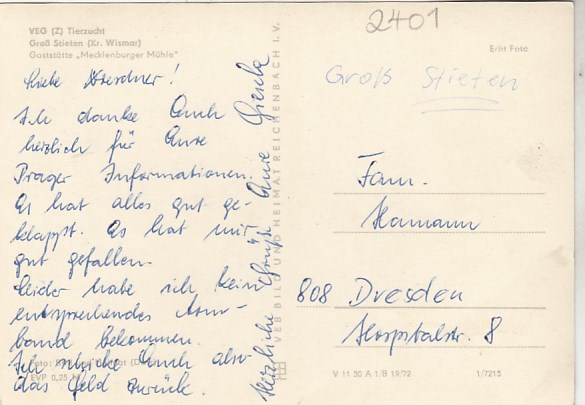 VEG (Z) Tierzucht
Groß Stieten (Kr. Wismar)
Gaststätte „Mecklenburger Mühle“
2401
Echt Foto
Groß Stieten
Liebe Dresdner!
Ich danke Euch
herzlich für Eure
Prager Informationen.
Es hat alles gut ge-
klappt. Es hat mir
gut gefallen.
Leider habe ich kein
entsprechendes Arm-
band bekommen.
Ich schicke Euch also
das Geld zurück.
Herzliche Grüße Eure Gisela
VEB BILD UND HEIMAT REICHENBACH I. V.
Fam.
Hamann
808 Dresden
Hospitalstr. 8
Foto:
EVP 0,25
V 11 50 A 1/B 19/72
1/7215